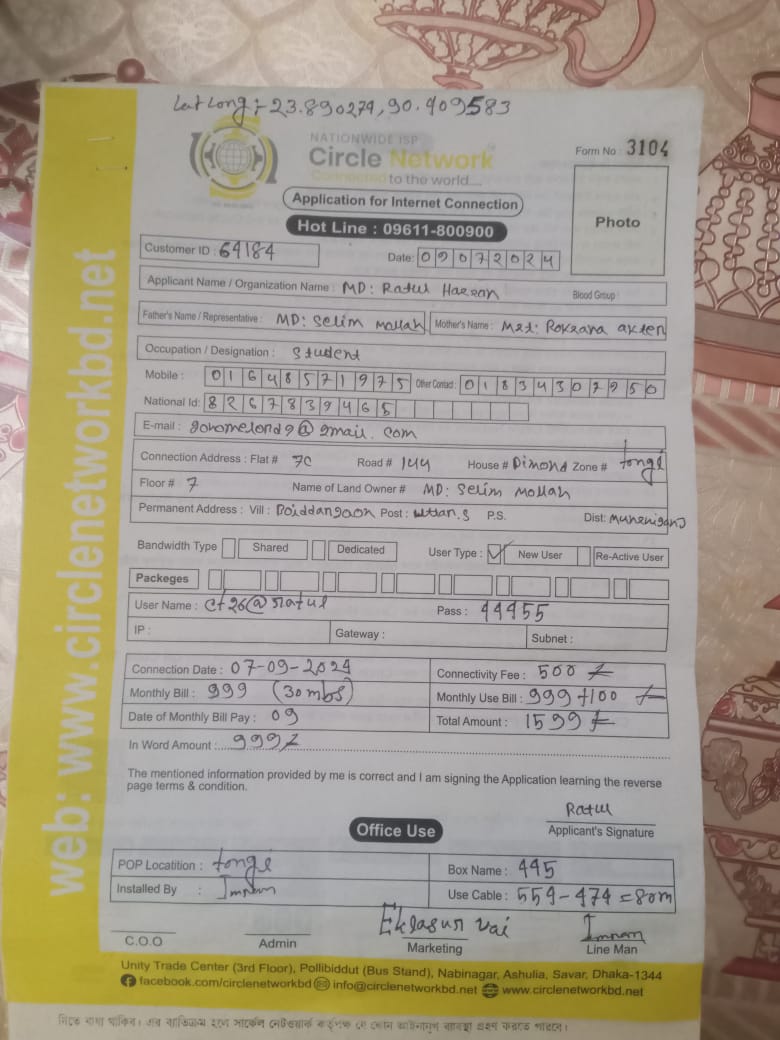 Lat Long :- 23.890274, 90.409583
NATIONWIDE ISP
Circle Network
Connected to the world....
Form No : 3104
Application for Internet Connection
Hot Line : 09611-800900
Photo
Customer ID : 64184
Date: 09072024
Applicant Name / Organization Name : MD: Ratul Hassan Blood Group :
Father's Name / Representative : MD: Selim mollah Mother's Name : Mst: Roksana akter
Occupation / Designation : Student
Mobile : 01648571975 Other Contact : 01834307950
National Id: 8267839465
E-mail : gohomelond9@gmail.com
Connection Address : Flat # 7C Road # 144 House # Dimond Zone # tongi
Floor # 7 Name of Land Owner # MD: Selim Mollah
Permanent Address : Vill : Doiddangaon Post : P.S. Dist: Munsniganj
Bandwidth Type Shared Dedicated User Type : ✓ New User Re-Active User
Packeges
User Name : ct26@ratul Pass : 44455
IP : Gateway : Subnet :
Connection Date : 07-09-2024 Connectivity Fee : 500/=
Monthly Bill : 999 (30mbs) Monthly Use Bill : 999+100 /=
Date of Monthly Bill Pay : 09 Total Amount : 1599/=
In Word Amount :.. 999/=
The mentioned information provided by me is correct and I am signing the Application learning the reverse
page terms & condition.
Ratul
Applicant's Signature
Office Use
POP Locatition : tongi Box Name : 445
Installed By : Imram Use Cable : 554-474 = 80m
Eklasur vai Imram
C.O.O Admin Marketing Line Man
Unity Trade Center (3rd Floor), Pollibiddut (Bus Stand), Nabinagar, Ashulia, Savar, Dhaka-1344
facebook.com/circlenetworkbd info@circlenetworkbd.net www.circlenetworkbd.net
দিতে বাধ্য থাকিব। এর ব্যতিক্রম হলে সার্কেল নেটওয়ার্ক কর্তৃপক্ষ যে কোন আইনানুগ ব্যবস্থা গ্রহণ করতে পারবে।
web: www.circlenetworkbd.net